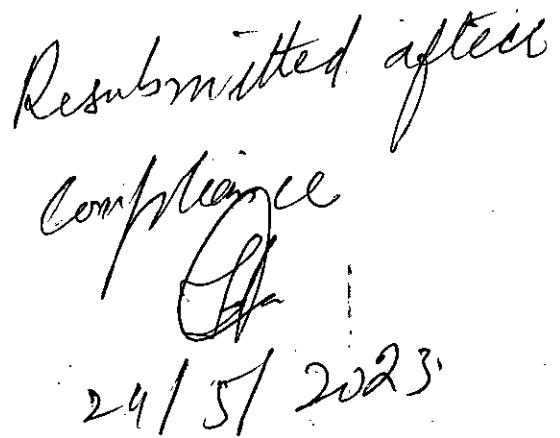 Resubmitted after
compliance
24/5/2023